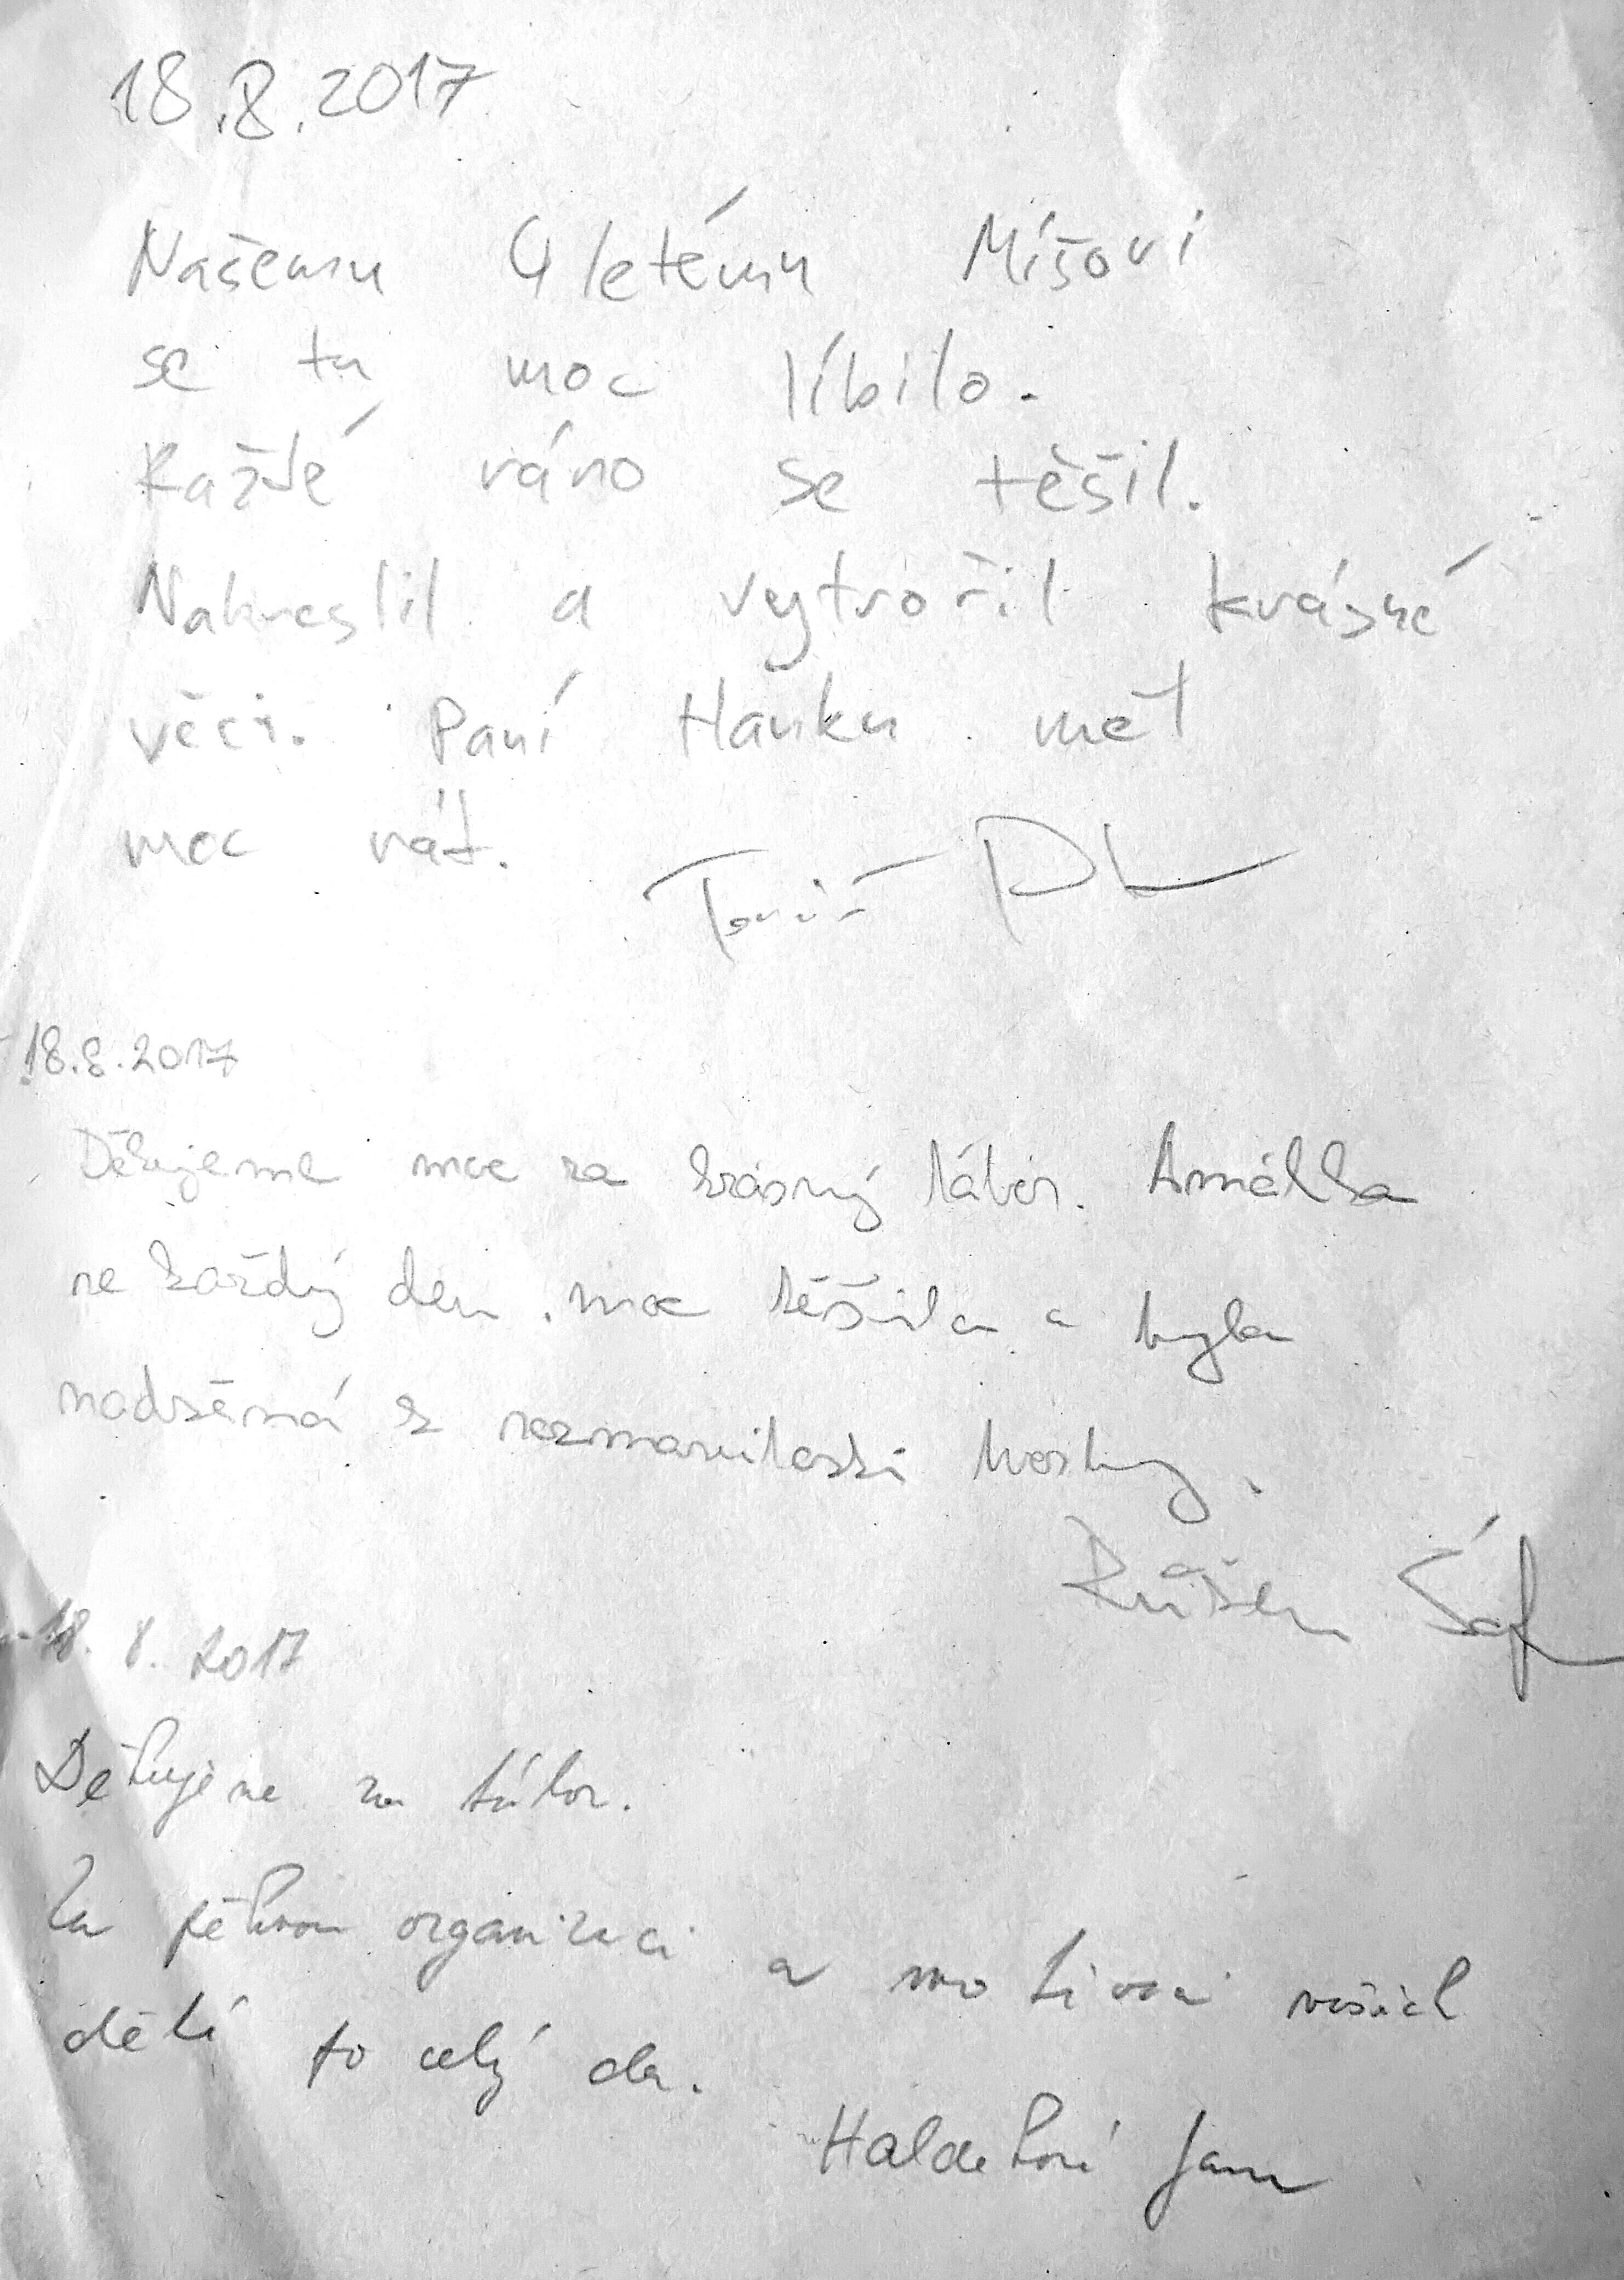 18.8.2017
Našemu 4 letému Míšovi
se tu moc líbilo.
Každé ráno se těšil.
Nakreslil a vytvořil krásné
věci. Paní Hanku měl
moc rád.
Tomáš
18.8.2017
Děkujeme moc za krásný tábor. Amálka
se každý den moc těšila a byla
nadšená z rozmanitosti tvorby.
Růžen
18. 8. 2017
Děkujeme za tábor.
Za pěknou organizaci a motivaci našich
dětí to celý
Jana